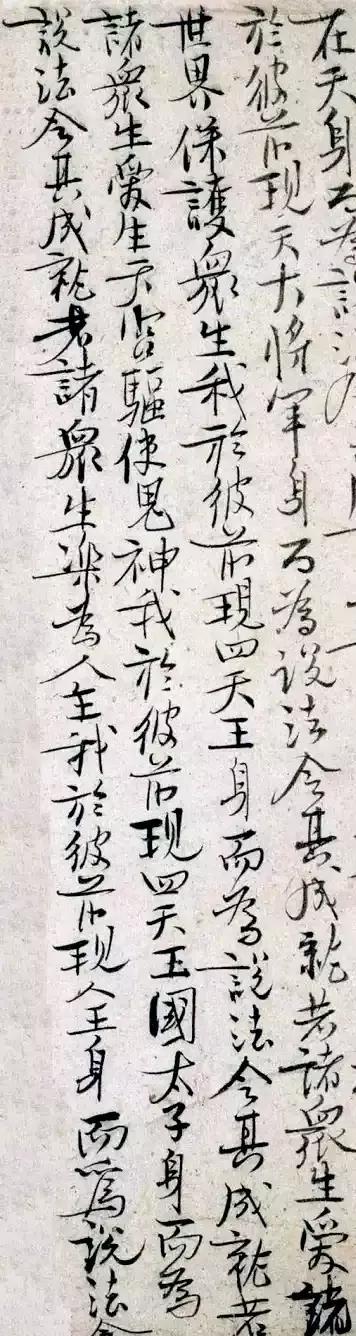 在天身而為說法
於彼前現天大將軍身而為說法令其成就若諸眾生愛諸
世界保護眾生我於彼前現四天王身而為說法令其成就若
諸眾生愛生天宮驅使鬼神我於彼前現四天王國太子身而為
說法令其成就若諸眾生樂為人主我於彼前現人王身而為說法令